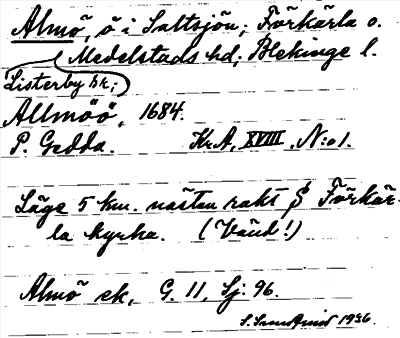 Almö, ö i Saltsjön; Förkärla o.
Medelstads hd; Blekinge l.
Listerby sk;
Allmöö, 1684.
P. Gedda. Kr.A, XVIII, N:o 1.
Läge 5 km. nästan rakt S Förkär-
la kyrka. (Vänd!)
Almö ek, G. 11, Sj: 96.
1936.